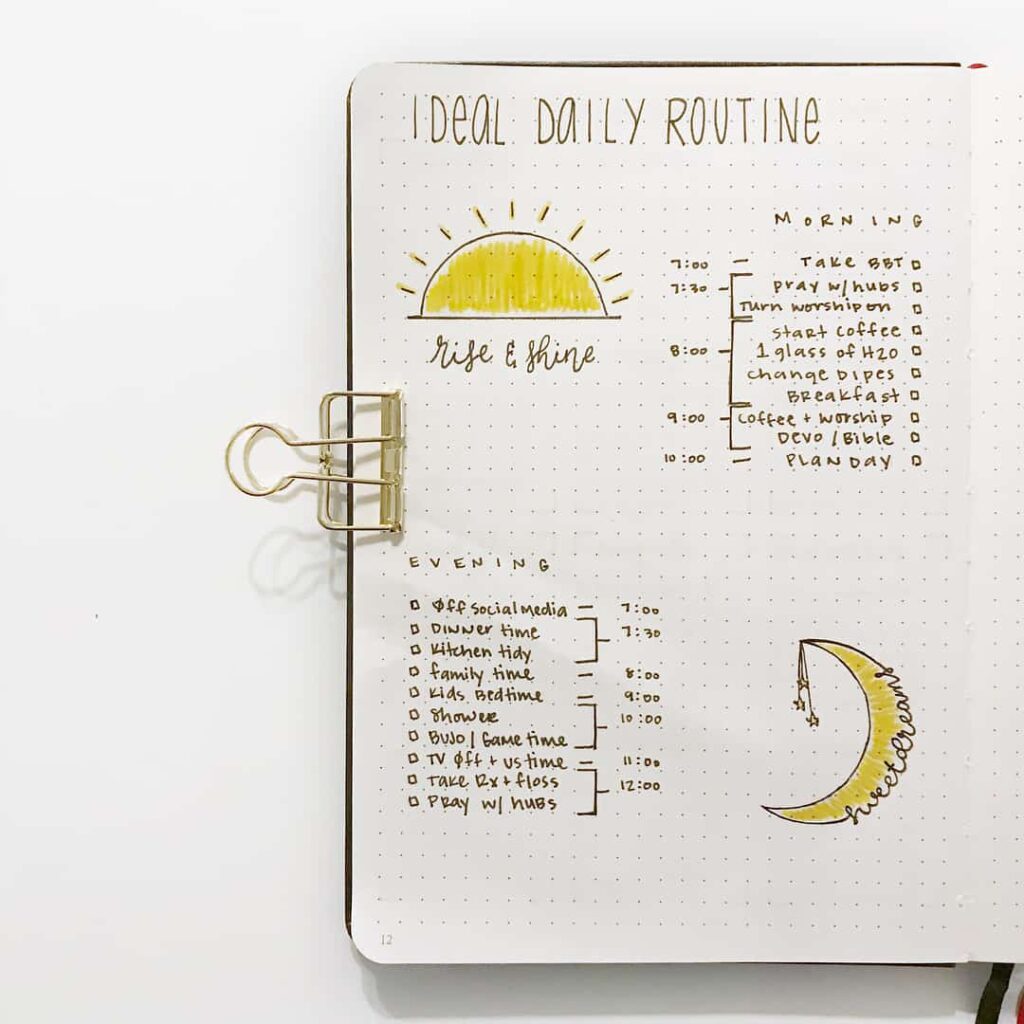 IDEAL DAILY ROUTINE
MORNING
7:00 - TAKE BBT
7:30 - PRAY W/HUBS
TURN WORSHIP ON
START COFFEE
8:00 - 1 GLASS OF H2O
CHANGE DIPES
BREAKFAST
9:00 - COFFEE + WORSHIP
DEVO / BIBLE
10:00 - PLAN DAY
rise & shine
EVENING
OFF SOCIAL MEDIA - 7:00
DINNER TIME - 7:30
KITCHEN TIDY
FAMILY TIME - 8:00
KIDS BEDTIME - 9:00
SHOWER - 10:00
BUJO / GAME TIME
TV OFF + US TIME - 11:00
TAKE RX + FLOSS - 12:00
PRAY W/ HUBS
sweet dreams
12